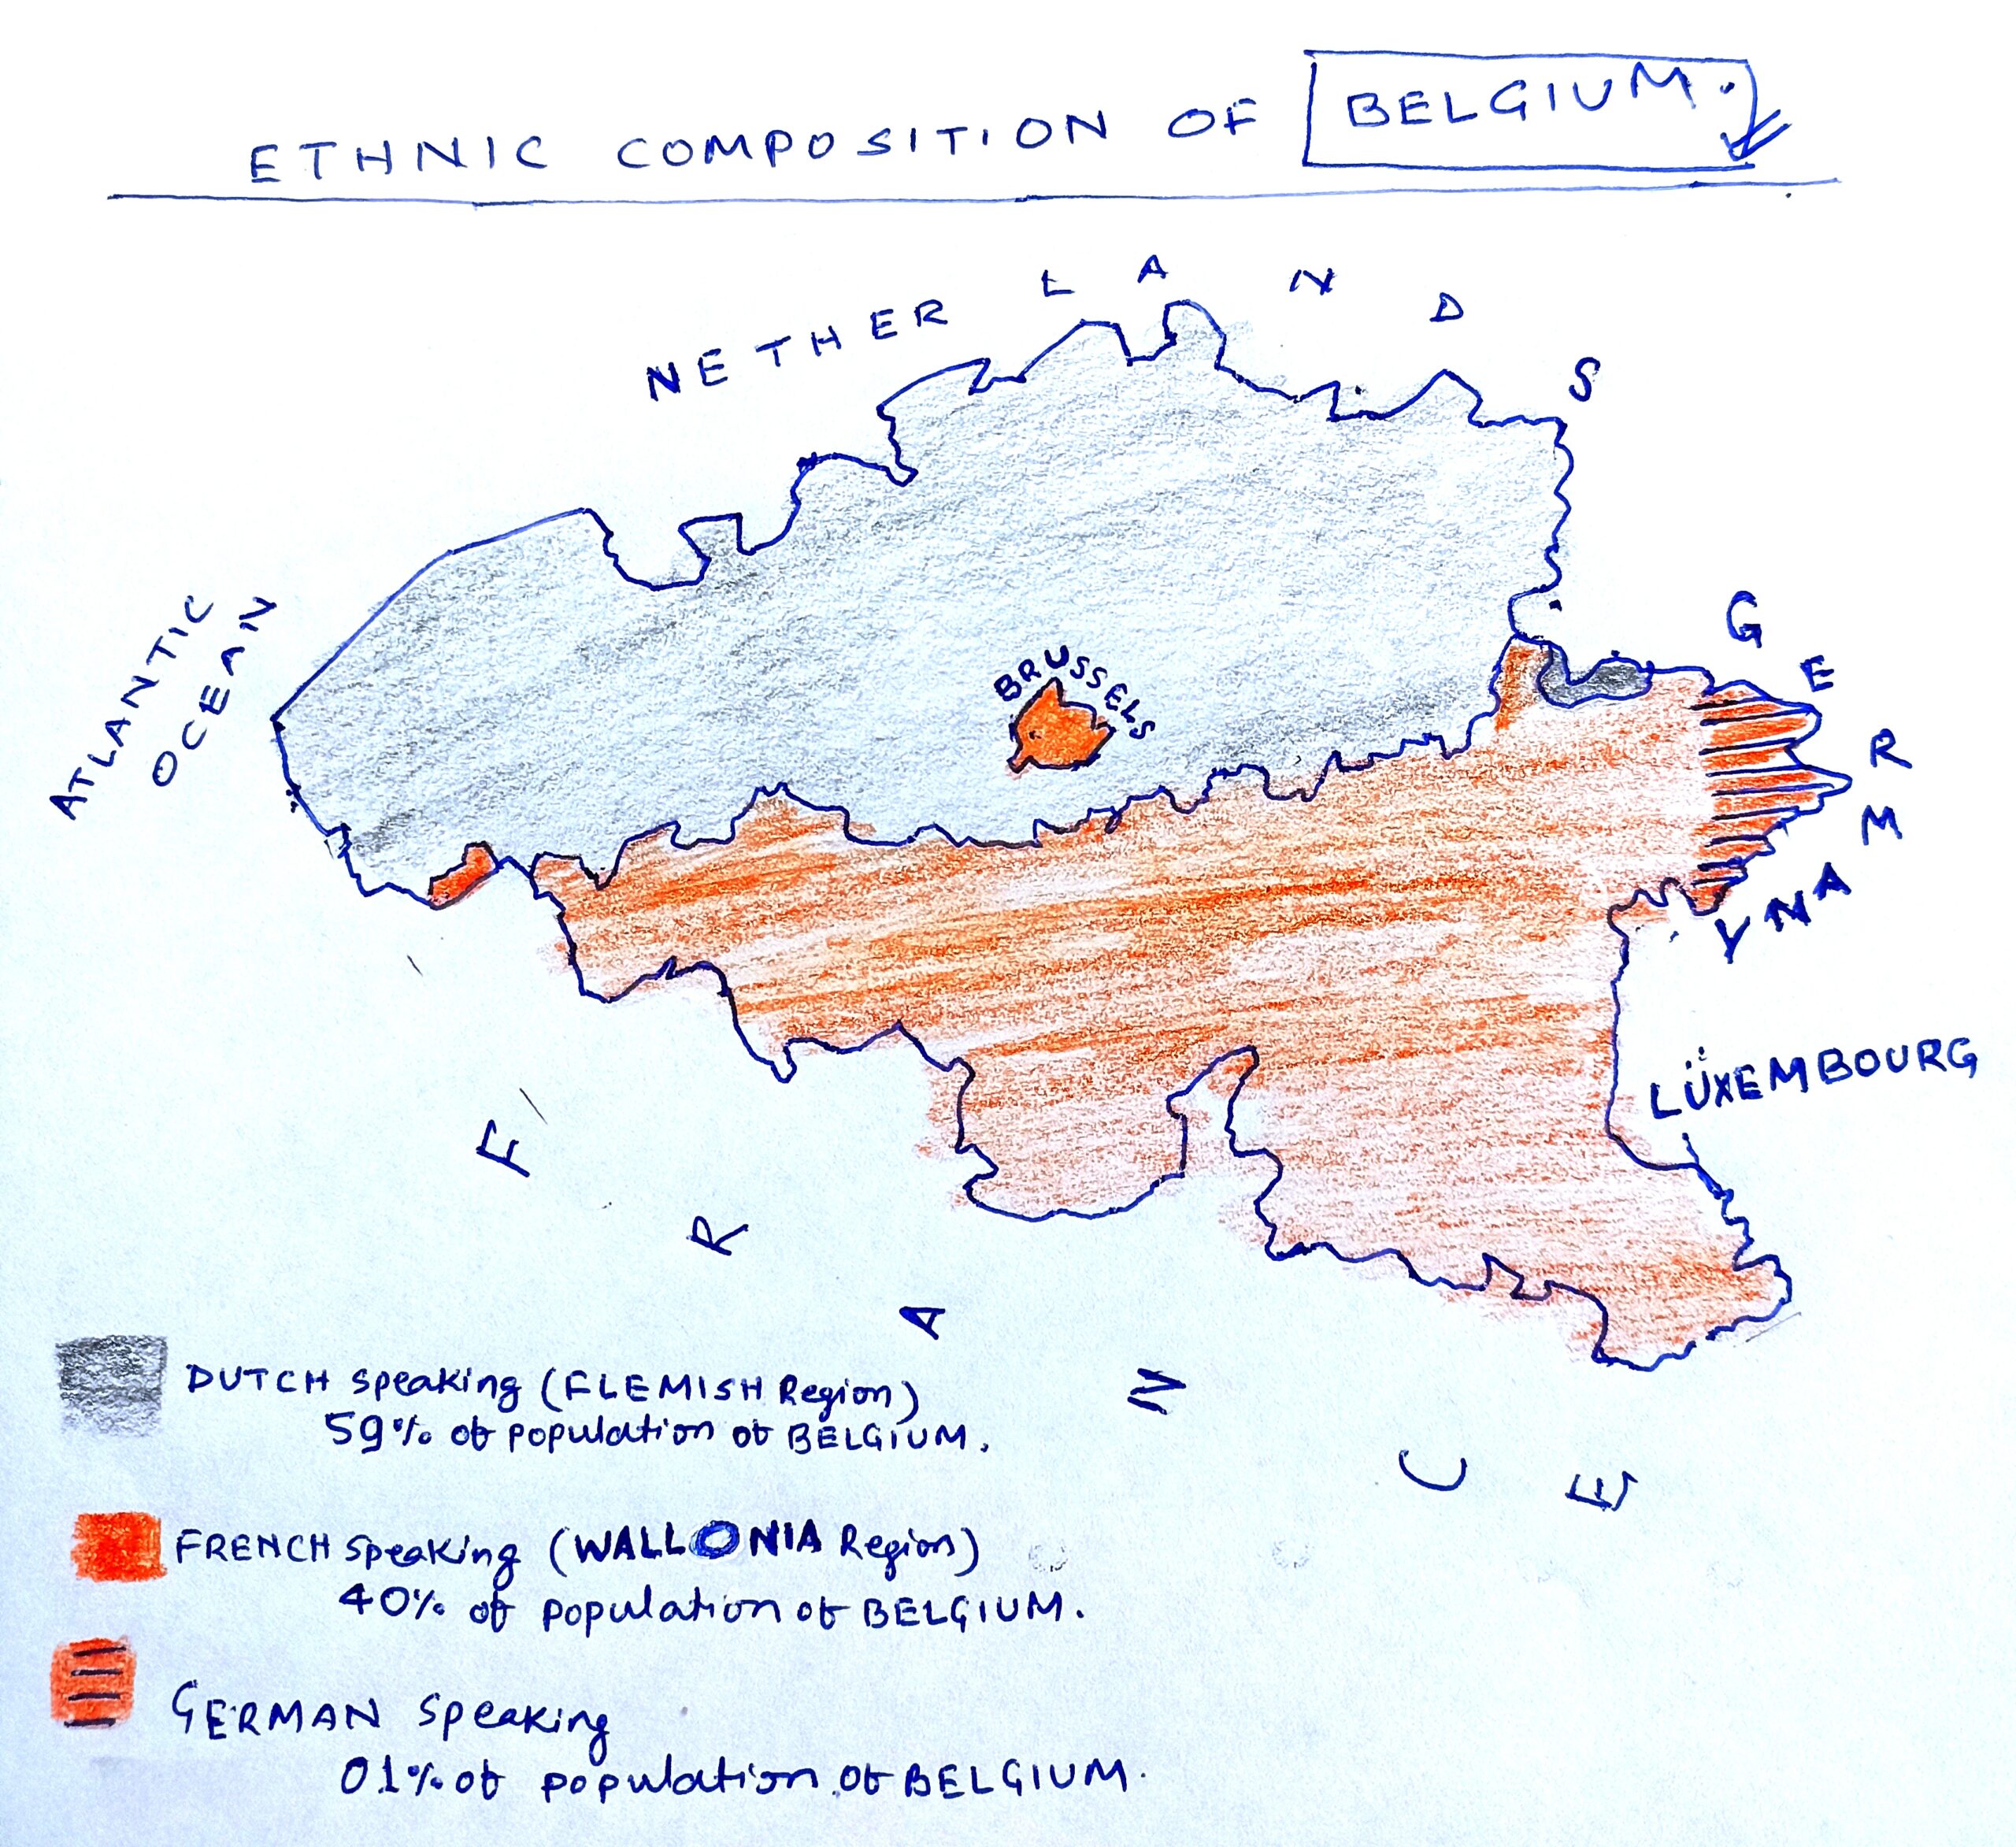 ETHNIC COMPOSITION OF BELGIUM.
NETHERLANDS
ATLANTIC
OCEAN
BRUSSELS
GERMANY
LÜXEMBOURG
FRANCE
DUTCH Speaking (FLEMISH Region)
59% of population of BELGIUM.
FRENCH Speaking (WALLONIA Region)
40% of population of BELGIUM.
GERMAN Speaking
01% of population of BELGIUM.